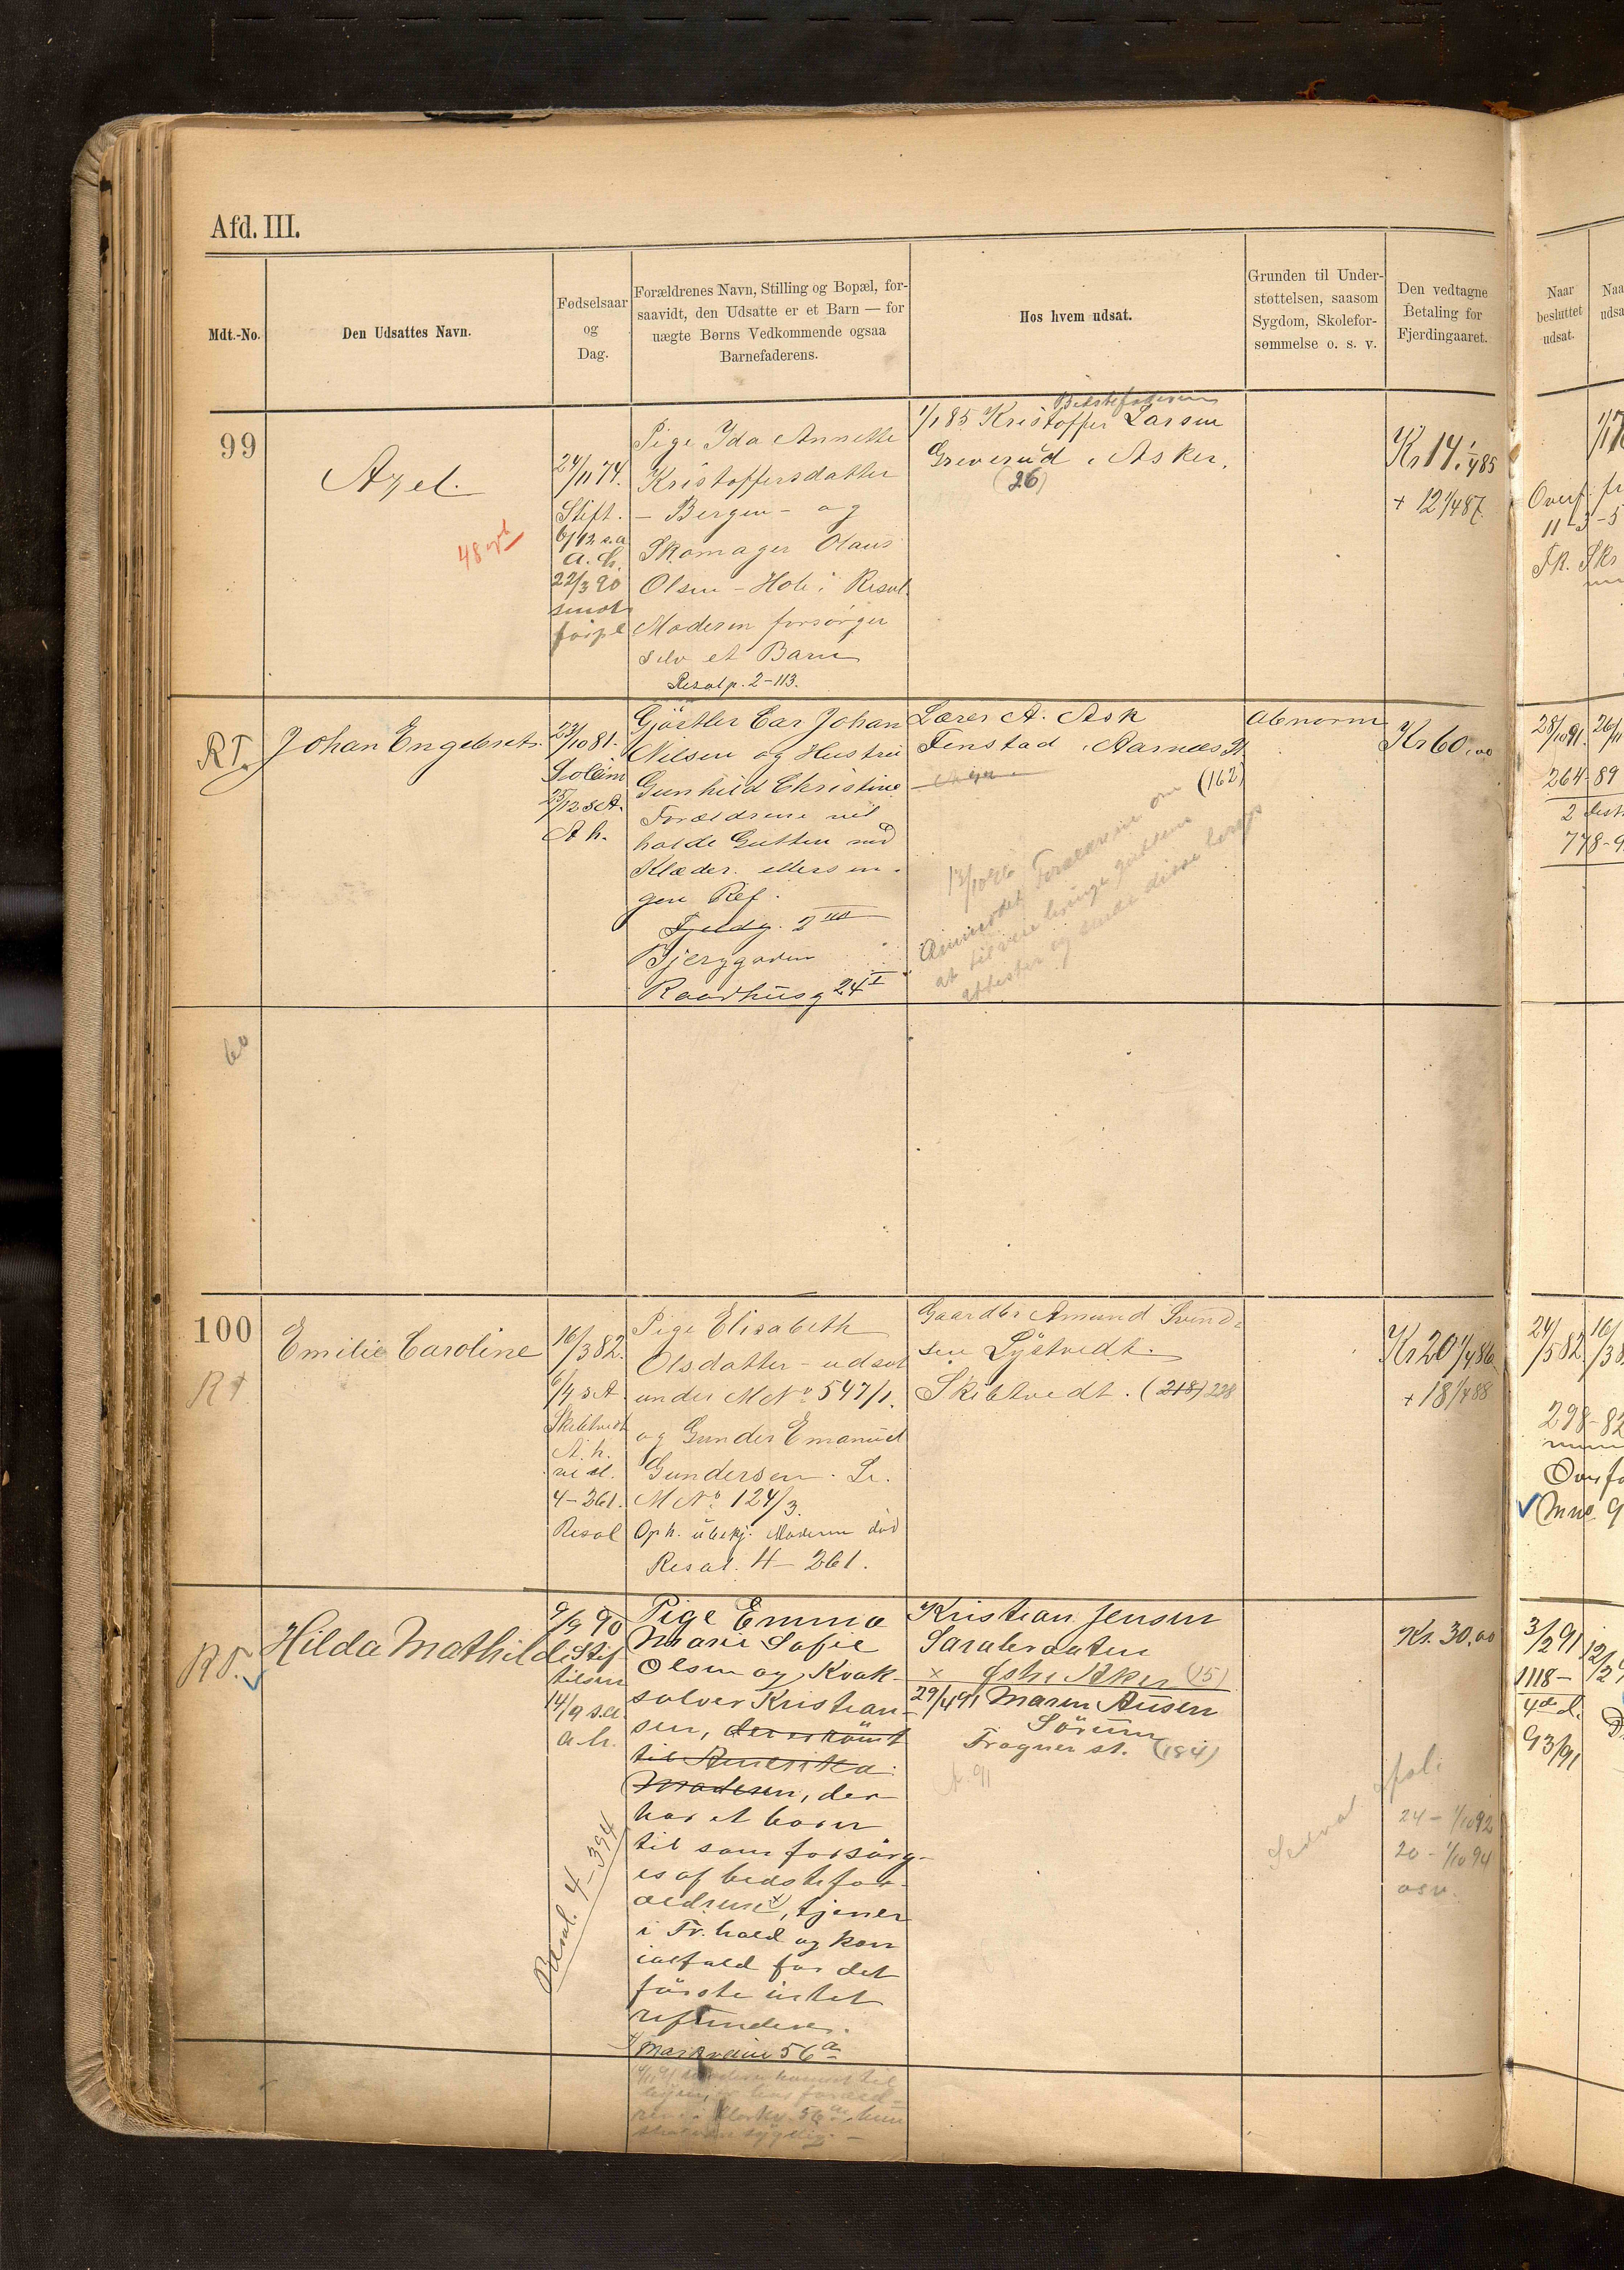 Afd. III.
Mdt.-No.
Den Udsattes Navn.
Fødselsaar
og
Dag.
Forældrenes Navn, Stilling og Bopæl, for-
saavidt, den Udsatte er et Barn — for
uægte Børns Vedkommende ogsaa
Barnefaderens.
Hos hvem udsat.
Grunden til Under-
støttelsen, saasom
Sygdom, Skolefor-
sømmelse o. s. v.
Den vedtagne
Betaling for
Fjerdingaaret.
Naar
besluttet
udsat.
Naa
udsa
99
Axel.
24/11 74.
Stift.
6/12 s.a
a. h.
22/3 90
Pige Ida Annette
Kristoffersdatter
- Bergen - og
Skomager Olaus
Olsen - Hole i Resol.
Moderen forsørger
selv et Barn
Resol p. 2-113.
Bedstefaderen
1/1 85 Kristoffer Larsen
Greverud i Asker.
(26)
Kr 14. 1/4 85
+ 12 1/4 87
RT.
Johan Engebret
23/10 81.
25/12 s.A.
A h.
Gjørtler Carl Johan
Nilsen og Hustru
Gunhild Christine
Forældrene vil
holde Gutten med
Klæder. ellers in-
gen Ref.
Bjerggaden
Raadhusg 24 I
Lærer A. Ask
Fenstad, Aarnes St
(162)
13/10 96
Anmodet Forældrene om
at tilveiebringe guttens
attester og sende disse
abnorm
Kr 60.00
28/10 91.
264-89
778-9
60
100
R T
Emilie Caroline
16/3 82.
6/4 s.A.
Skibtvedt
A. h.
4-261.
Resol
Pige Elisabeth
Olsdatter - udsat
under M No 547/1.
og Gunder Emanuel
Gundersen. Se.
M No 124/3
Oph. ubekj. Moderen død
Resol. 4-261.
Gaardbr Amund Svend-
sen Lystvedt.
Skibtvedt. (218) 228
Kr 20 1/4 86
+ 18 1/4 88
24/5 82
298-82
Mno. 9
RT.
Hilda Mathilde
9/9 90
Stif
telsen
14/9 s.a.
a.h.
Resol. 4-394
Pige Emma
Marie Sofie
Olsen og Kvak-
salver Kristian-
sen, der er rømt
til Amerika.
Moderen, der
har et barn
til som forsørg-
es af bedstefor-
ældrene x), tjener
i Fr.hald og kan
ialfald for det
første intet
refundere.
x) Markveien 56 a
Kristian Jensen
Sarabraaten
x Østre Aker (15)
29/4 91 Maren Ausen
Sørum
Frogner st. (184)
Kr. 30.00
24 - 1/10 92
20 - 1/10 94
osv.
3/2 91
1118-
93/91